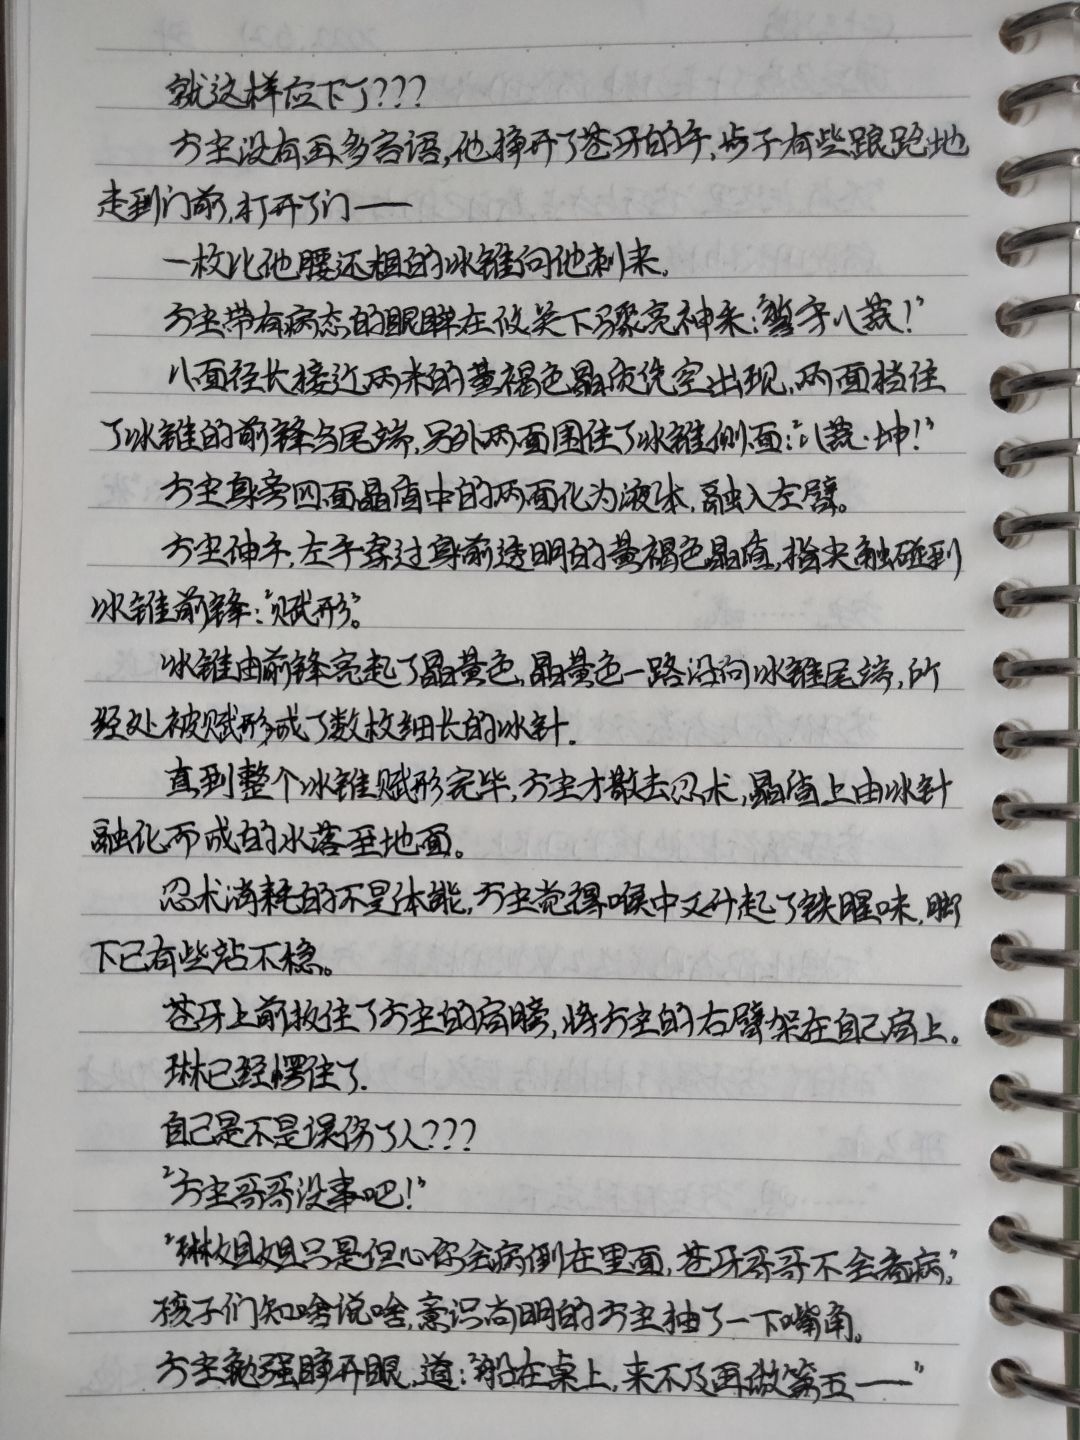 就这样应下了???
方尘没有再多言语,他挣开了苍牙的手,步子有些踉跄地
走到门前,打开了门——
一枚比他腰还粗的冰锥向他刺来.
方尘带有病态的眼眸在攸关下骤亮神采:“掌字八荒!”
八面径长接近两米的黄褐色晶质凭空出现,两面挡住
了冰锥的前锋与尾端,另外两面围住了冰锥侧面:“八荒·坤!”
方尘身旁四面晶质中的两面化为液体,融入左臂。
方尘伸手,左手穿过身前透明的黄褐色晶质,指尖触碰到
冰锥前锋:“赋形”。
冰锥由前锋亮起了晶黄色,晶黄色一路沿向冰锥尾端,所
经处被赋形成了数枚细长的冰针.
直到整个冰锥赋形完毕,方尘才散去忍术,晶质上由冰针
融化而成的水落至地面。
忍术消耗的不是体能,方尘觉得喉中又升起了铁腥味,脚
下已有些站不稳。
苍牙上前扳住了方尘的肩膀,将方尘的右臂架在自己肩上。
琳已经愣住了.
自己是不是误伤了人???
“方尘哥哥没事吧!”
“琳姐姐只是但心你会病倒在里面,苍牙哥哥不会看病。”
孩子们知啥说啥,意识尚明的方尘抽了一下嘴角。
方尘勉强睁开眼,道:“船在桌上,来不及再做第五——”